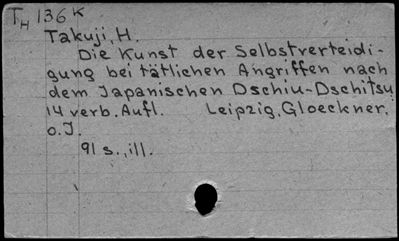 TH 136 K
Takuji, H.
Die Kunst der Selbstverteidi-
gung bei tätlichen Angriffen nach
dem Japanischen Dschiu-Dschitsu
14 verb. Aufl. Leipzig, Gloeckner,
o.J.
91 s., ill.